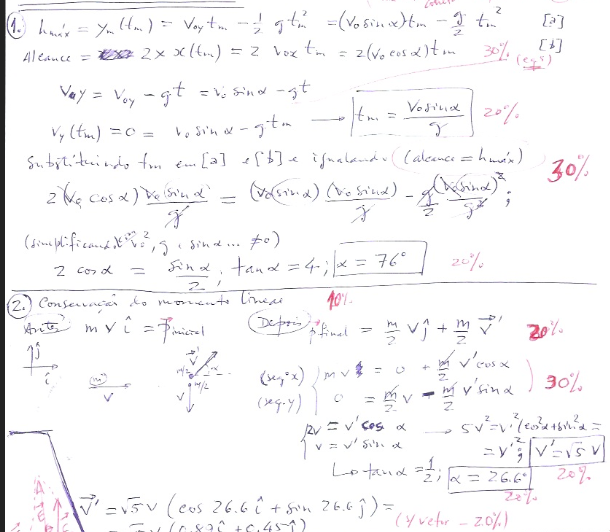 1. hmáx = ym(tm) = voy tm - 1/2 g tm² = (vo sin α) tm - g/2 tm² [a]
Alcance = 2 × x(tm) = 2 vox tm = 2(vo cos α) tm 30% [b]
(eqs)
Voy = voy - gt = vo sin α - gt
vy(tm) = 0 = vo sin α - g tm → tm = vo sin α / g 20%
Substituindo tm em [a] e [b] e igualando (alcance = hmáx) 30%
2(vo cos α) vo sin α / g = (vo sin α)(vo sin α) / g - g/2 (vo sin α)² / g² ;
(simplificando vo², g, sin α ... ≠ 0)
2 cos α = sin α / 2 ; tan α = 4 ; α = 76° 20%
2. Conservação do momento linear 10%
Antes m v î = P inicial Depois P final = m/2 v ĵ + m/2 v⃗' 20%
ĵ
î
m
v
v⃗'
m/2
α
m/2
v
(seg. x) m v = 0 + m/2 v' cos α
(seg. y) 0 = m/2 v - m/2 v' sin α 30%
2v = v' cos α → 5v² = v'² (cos² α + sin² α =
v = v' sin α = v'² ; v' = √5 v
↳ tan α = 1/2 ; α = 26.6° 20%
20%
v⃗' = √5 v (cos 26.6 î + sin 26.6 ĵ) =
(y vetor - 20%)